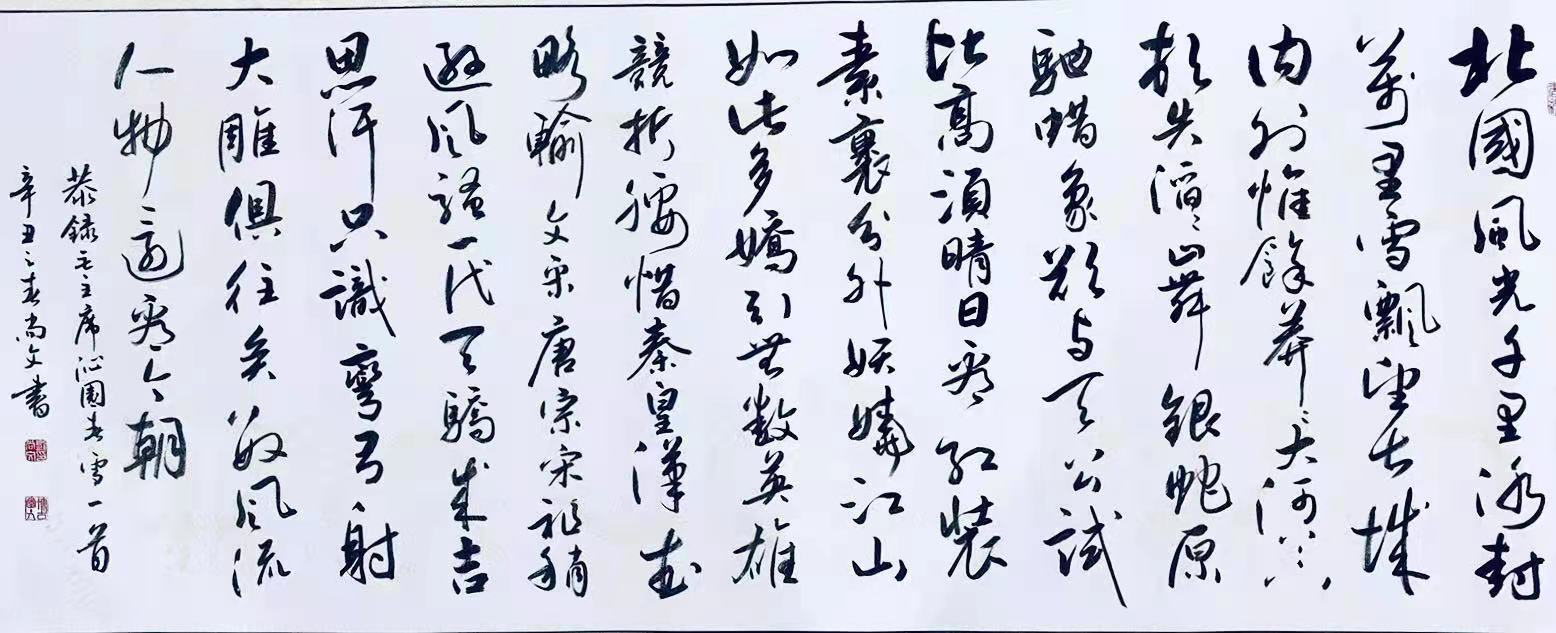 北國風光千里冰封
萬里雪飄望長城
內外惟餘莽〻大河上下
頓失滔〻山舞銀蛇原
馳蠟象欲與天公試
比高須晴日看紅裝
素裹分外妖嬈江山
如此多嬌引無數英雄
競折腰惜秦皇漢武
略輸文采唐宗宋祖稍
遜風騷一代天驕成吉
思汗只識彎弓射
大雕俱往矣數風流
人物還看今朝
恭錄毛主席沁園春雪一首
辛丑之春尚文書